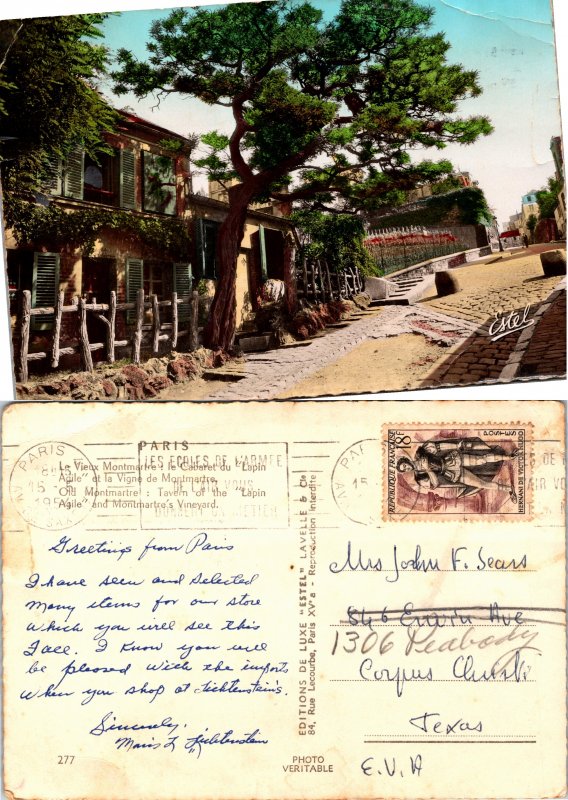 Estel
PARIS
Le Vieux Montmartre : le Cabaret du "Lapin
Agile" et la Vigne de Montmartre.
Old Montmartre : Tavern of the "Lapin
Agile" and Montmartre's Vineyard.
PARIS
15 -
LES ECOLES DE L'ARMEE
VOUS
METIER
Greetings from Paris
I have seen and selected
many items for our store
which you will see this
Face. I know you will
be pleased with the imports
when you shop at Lichtenstein's.
Sincerely,
Lichtenstein
277
PHOTO
VERITABLE
EDITIONS DE LUXE "ESTEL" LAVELLE & Co
84, Rue Lecourbe, Paris XVe - Reproduction Interdite
18F
POSTES
REPUBLIQUE FRANÇAISE
HERNANI DE VICTOR HUGO
Mrs John F. Sears
846 Erwin Ave
1306 Peabody
Corpus Christi
Texas
E.V.A